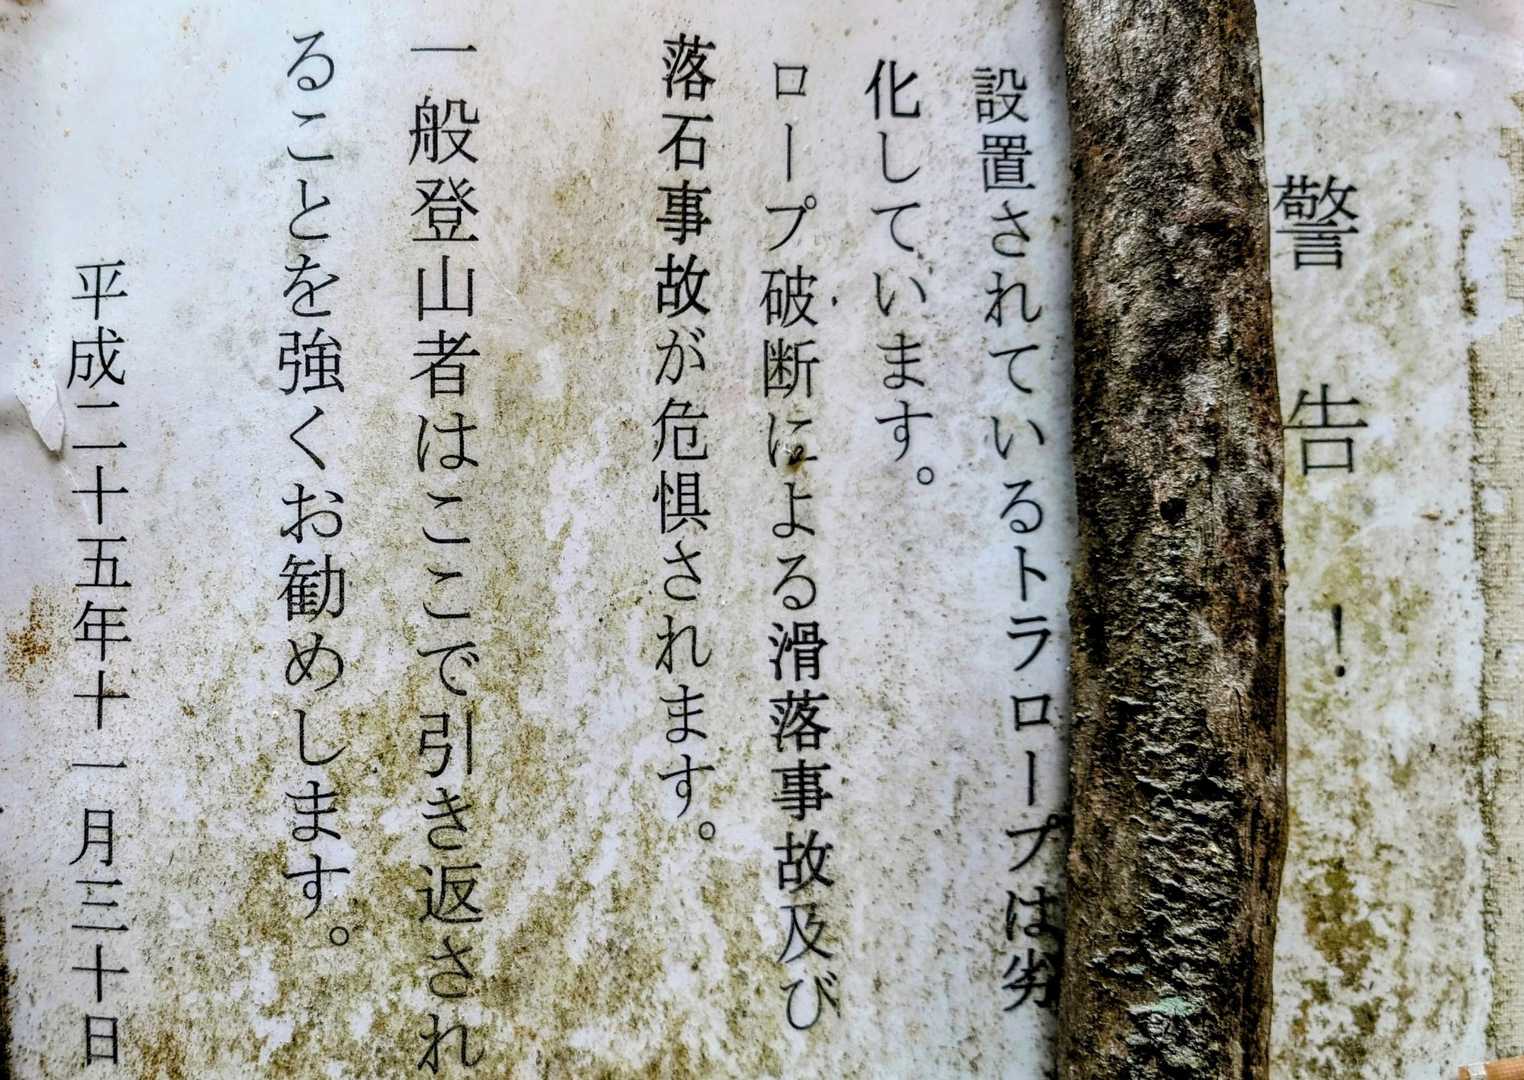 警告！
設置されているトラロープは劣
化しています。
ロープ破断による滑落事故及び
落石事故が危惧されます。
一般登山者はここで引き返され
ることを強くお勧めします。
平成二十五年十一月三十日